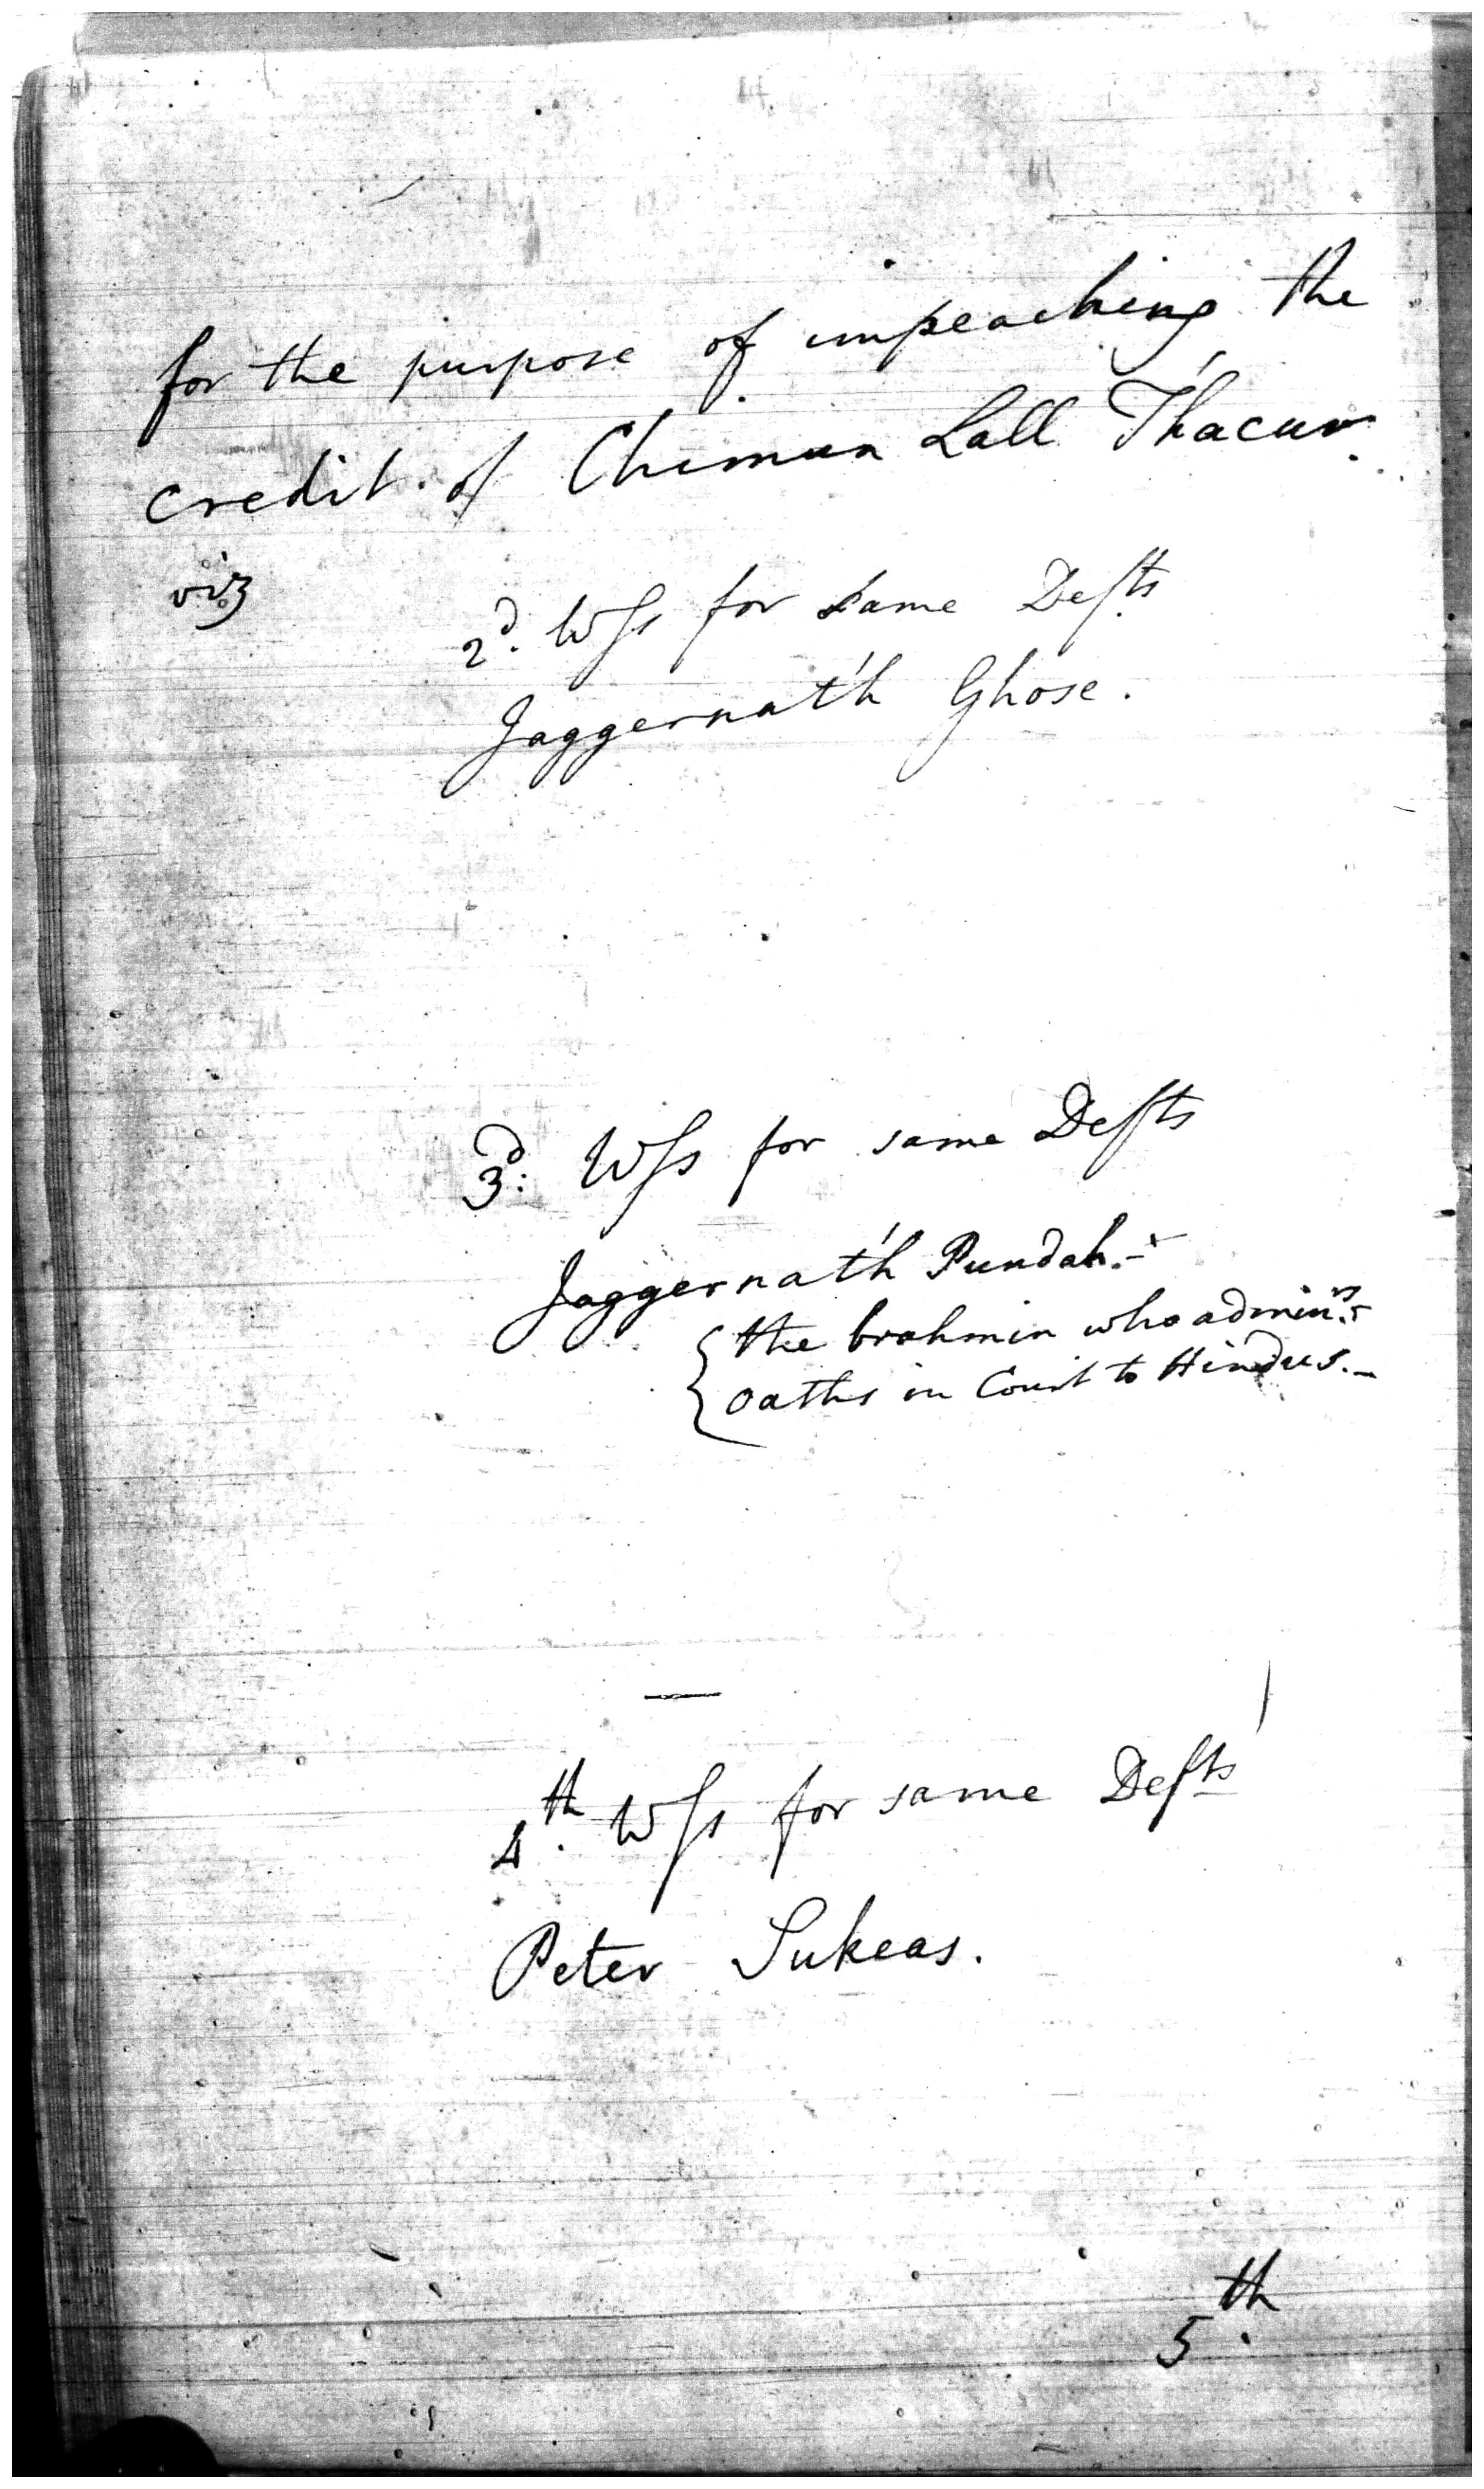 for the purpose of impeaching the
credit of Chimun Lall Thacur.
viz
2d. Wss for same Defts
Jaggernath Ghose.
3d: Wss for same Defts
Jaggernath Pundah.
the brahmin who adminrs
oaths in Court to Hindus.
4th. Wss for same Defts
Peter Sukeas.
5th.